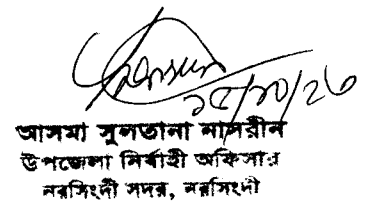 ২৫/১০/২৩
আসমা সুলতানা নাসরীন
উপজেলা নির্বাহী অফিসার
নরসিংদী সদর, নরসিংদী